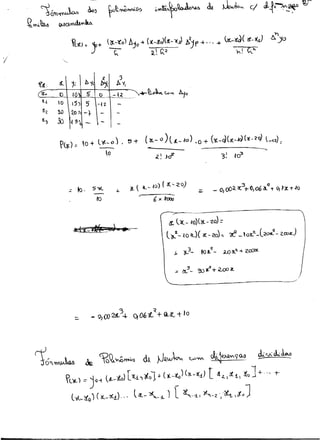 Fórmulas dos polinômios interpoladores de Newton c/ diferenças
finitas ascendentes
P(x) = y₀ + (x-x₀) Δy₀ + (x-x₀)(x-x₁) Δ²y₀ + ... + (x-x₀)(x-xₙ) Δⁿy₀
h 2! h² n! hⁿ
x y Δy Δ²y Δ³y
x₀ 0 10 5 0 -12
x₁ 10 15 5 -12 -
x₂ 20 20 -7 - -
x₃ 30 - - -
P(x) = 10 + (x-0) . 5 + (x-0)(x-10) .0 + (x-0)(x-10)(x-20) (-12),
10 2! 10² 3! 10³
= 10 . 5x + x(x-10)(x-20) = -0,002x³+0,06x²+0,1x+10
10 6 × 1000
x(x-10)(x-20) =
(x²-10x)(x-20) = x³-10x²-(20x²-200x)
= x³- 10x²- 20x²+200x
= x³- 30x²+200x
= -0,002x³+ 0,06x²+0,1x+10
Fórmulas de Polinômio de Newton com diferenças divididas
P(x) = y₀+ (x-x₀)[x₁,x₀]+(x-x₀)(x-x₁) [x₂,x₁,x₀]+ ... +
(x-x₀)(x-x₁)... (x-xₙ₋₁) [xₙ₋₁,xₙ₋₂,x₁,x₀]